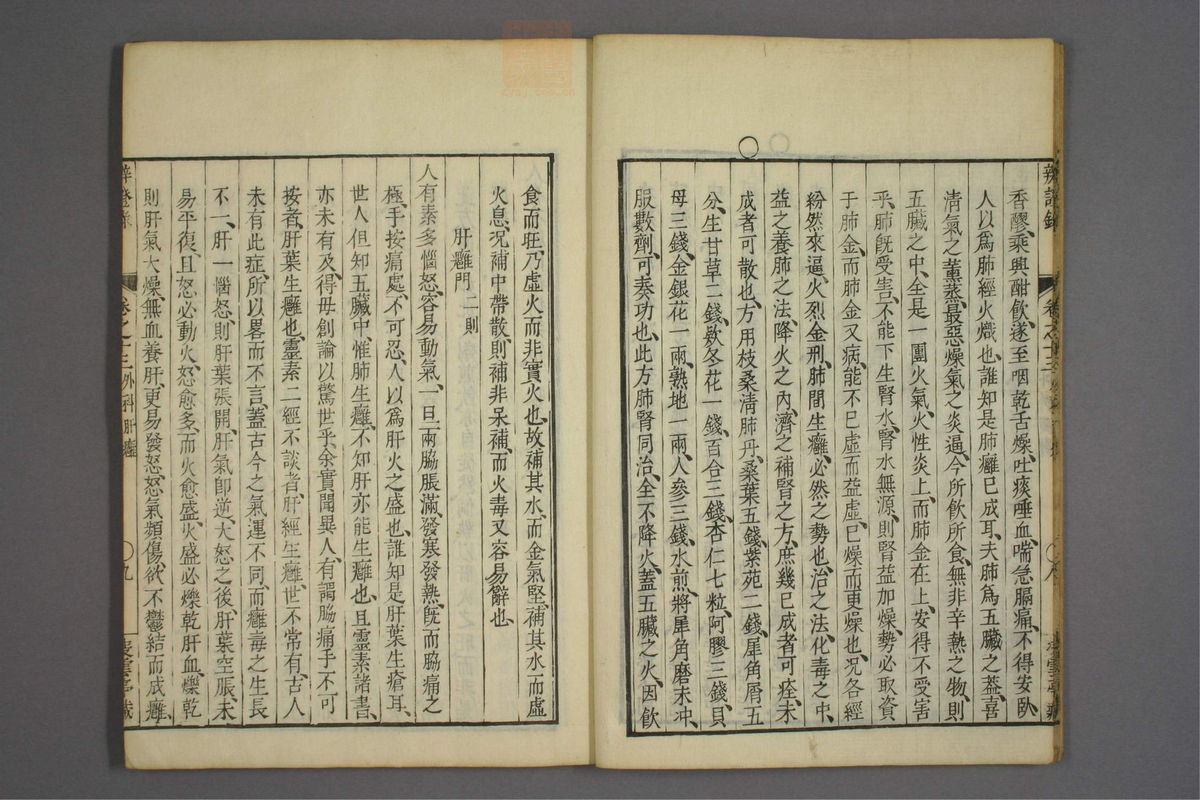 香醪、乘興酣飲、遂至咽乾舌燥、吐痰唾血、喘急膈痛、不得安臥、
人以爲肺經火熾也、誰知是肺癰已成耳、夫肺爲五臟之蓋、喜
淸氣之薰蒸、最惡燥氣之炎逼、今所飲所食、無非辛熱之物、則
五臟之中、全是一團火氣、火性炎上、而肺金在上、安得不受害
乎、肺旣受害、不能下生腎水、腎水無源、則腎益加燥、勢必取資
于肺金、而肺金又病、能不已虛而益虛、已燥而更燥也、况各經
紛然來逼、火烈金刑、肺間生癰、必然之勢也、治之法、化毒之中、
益之養肺之法、降火之內、濟之補腎之方、庶幾已成者可痊、未
成者可散也、方用枝桑淸肺丹、桑葉五錢、紫苑二錢、犀角屑五
分、生甘草二錢、欵冬花一錢、百合三錢、杏仁七粒、阿膠三錢、貝
母三錢、金銀花一兩、熟地一兩、人參三錢、水煎、將犀角磨末冲、
服數劑、可奏功也、此方肺腎同治、全不降火、蓋五臟之火、因飲
食而旺、乃虛火而非實火也、故補其水、而金氣堅、補其水而虛
火息、况補中帶散、則補非呆補、而火毒又容易辭也、
肝癰門 二則
人有素多惱怒、容易動氣、一旦兩脇脹滿、發寒發熱、旣而脇痛之
極、手按痛處、不可忍、人以爲肝火之盛也、誰知是肝葉生瘡耳、
世人但知五臟中、惟肺生癰、不知肝亦能生癰也、且靈素諸書、
亦未有及、得毋創論以驚世乎、余實聞異人、有謂脇痛手不可
按者、肝葉生癰也、靈素二經不談者、肝經生癰、世不常有、古人
未有此症、所以畧而不言、蓋古今之氣運不同、而癰毒之生長
不一、肝一惱怒、則肝葉張開、肝氣卽逆、大怒之後、肝葉空脹、未
易平復、且怒必動火、怒愈多、而火愈盛、火盛必爍乾肝血、爍乾
則肝氣大燥、無血養肝、更易發怒、怒氣頻傷、欲不鬱結而成癰、
卷之十三 外科肝癰
九